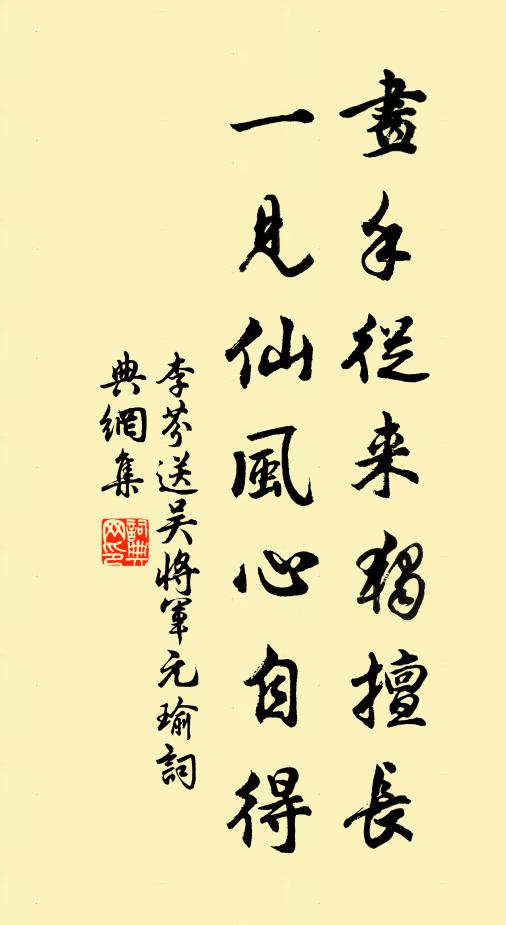 畫手從来獨擅長
一見仙風心自得
李芬送吴將軍元瑜詞
典網集
詞典
网印